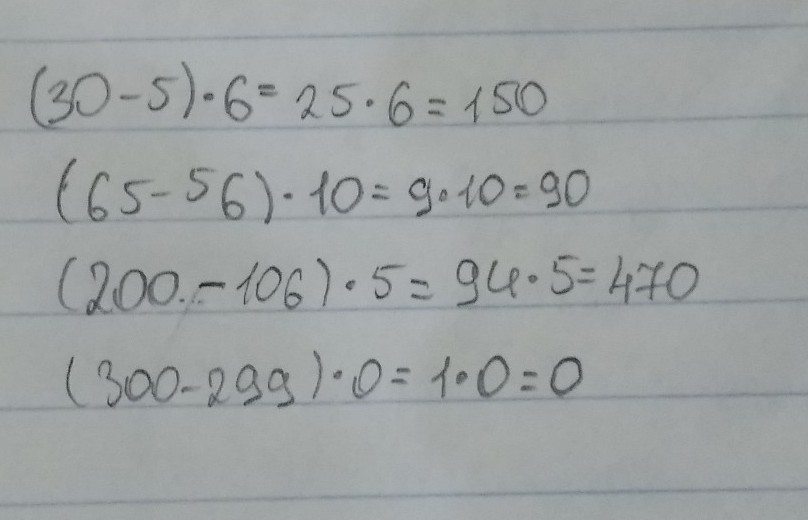 (30-5)·6= 25·6=150
(65-56)·10=9·10=90
(200.-106)·5=94·5=470
(300-299)·0=1·0=0